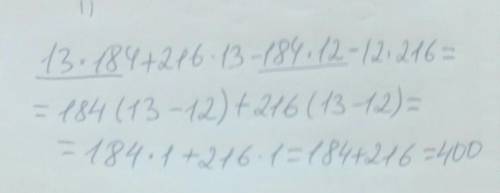 1)
13·184+216·13-184·12-12·216=
=184(13-12)+216(13-12)=
=184·1+216·1=184+216=400